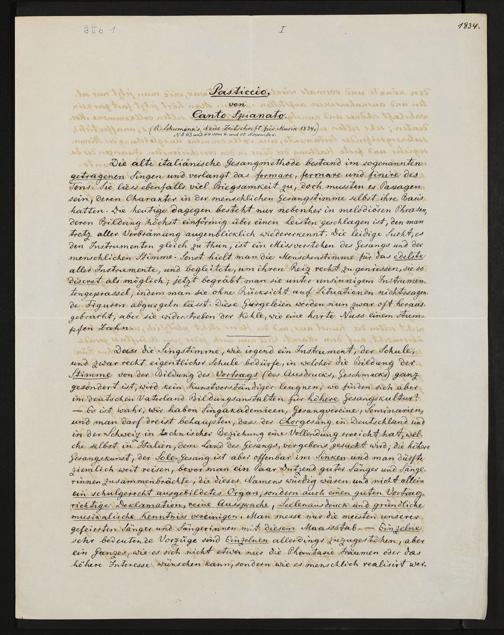 B II 6 1
I
1834.
Pasticcio,
von
Canto Spianato.
(R. Schumann's Neue Zeitschrift für Musik 1834,
Nº 63 und 64 vom 6. und 10. November.
Die alte italiänische Gesangmethode bestand im sogenannten
getragenen Singen und verlangt das formare, fermare und finire des
Tons. Sie liess ebenfalls viel Biegsamkeit zu, doch mussten es Passagen
sein, deren Charakter in der menschlichen Gesangstimme selbst ihre Basis
hatten. Die heutige dagegen besteht nur nebenher in melodiösen Phrasen,
deren Bildung höchst einförmig über einen Leisten geschlagen ist, den man
trotz aller Verbrämung augenblicklich wiedererkennt. Die leidige Sucht, es
den Instrumenten gleich zu thun, ist ein Missverstehen des Gesangs und der
menschlichen Stimme. Sonst hielt man die Menschenstimme für das edelste
aller Instrumente, und begleitete, um ihren Reiz recht zu geniessen, sie so
discret als möglich; jetzt begräbt man sie unter unsinnigem Instrumen-
tengeprassel, indem man sie ohne Rücksicht auf Situationen nichtssagen-
de Figuren abgurgeln lässt. Diese Gurgeleien werden nun zwar oft heraus-
gebracht, aber sie widerstreben der Kehle, wie eine harte Nuss einem stum-
pfen Zahn.
Dass die Singstimme, wie irgend ein Instrument, der Schule,
und zwar recht eigentlicher Schule bedürfe, in welcher die Bildung der
Stimme von der Bildung des Vortrags (des Ausdrucks, Geschmacks) ganz
gesondert ist, wird kein Kunstverständiger leugnen; wo finden sich aber
im deutschen Vaterland Bildungsanstalten für höhere Gesangskultur?
— Es ist wahr, wir haben Singakademieen, Gesangvereine, Seminarien,
und man darf dreist behaupten, dass der Chorgesang in Deutschland und
in der Schweiz in technischer Beziehung eine Vollendung erreicht hat, wel-
che selbst in Italien, dem Land des Gesangs, vergebens gesucht wird; die höhere
Gesangskunst, der Sologesang ist aber offenbar im Sinken und man dürfte
ziemlich weit reisen, bevor man ein Paar Dutzend guter Sänger und Sänge-
rinnen zusammenbrächte, die dieses Namens würdig wären und nicht allein
ein schulgerecht ausgebildetes Organ, sondern auch einen guten Vortrag,
richtige Deklamation, reine Aussprache, Seelenausdruck und gründliche
musikalische Kenntniss vereinigen. Man messe nur die meisten unserer
gefeierten Sänger und Sängerinnen mit diesem Maassstab. — Einzelne
sehr bedeutende Vorzüge sind Einzelnen allerdings zuzugestehen, aber
ein Ganzes, wie es sich nicht etwa nur die Phantasie träumen oder das
höhere Interesse wünschen kann, sondern wie es menschlich realisirt wer-